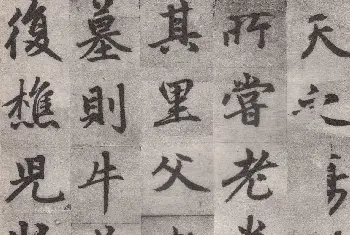 天穴
所嘗老
其里父
墓則牛
復樵兒